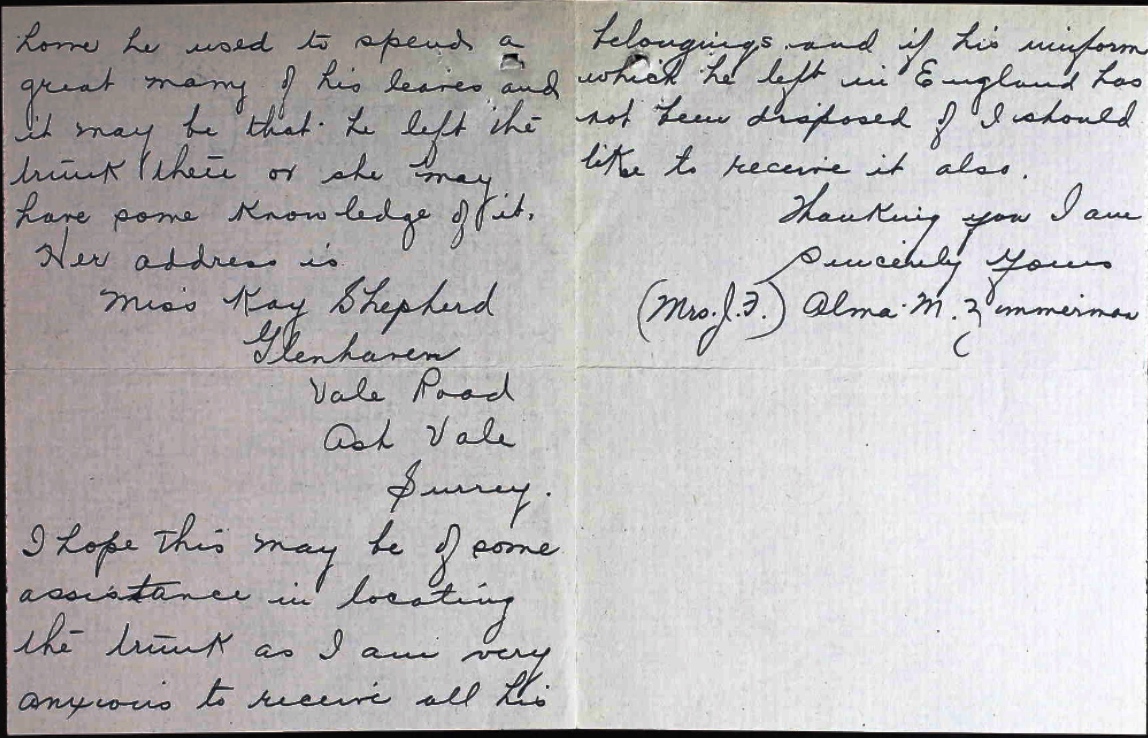 home he used to spend a
great many of his leaves and
it may be that he left the
trunk there or she may
have some knowledge of it.
Her address is
Miss Kay Shepherd
Glenhaven
Vale Road
Ash Vale
Surrey.
I hope this may be of some
assistance in locating
the trunk as I am very
anxious to receive all his
belongings and if his uniform
which he left in England has
not been disposed of I should
like to receive it also.
Thanking you I am
Sincerely Yours
(Mrs. J.F.) Alma M. Zimmerman